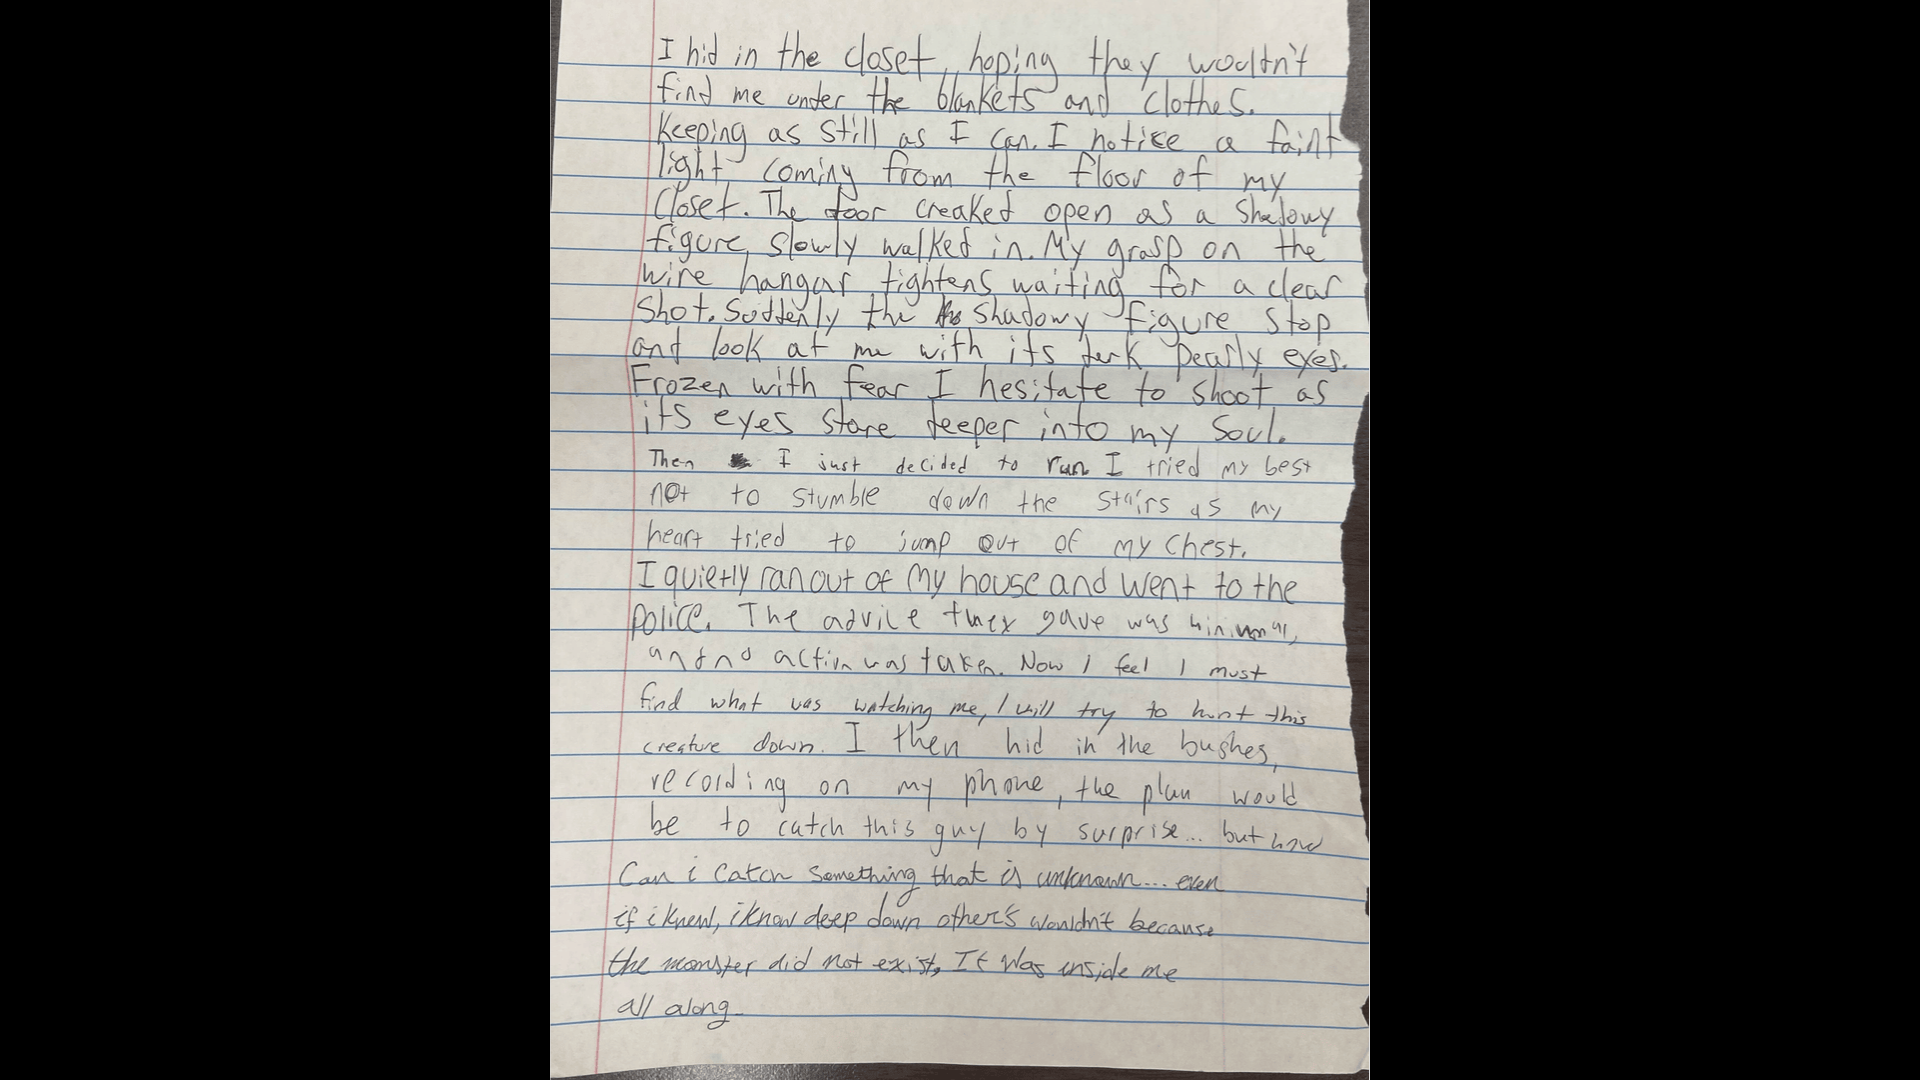 I hid in the closet, hoping they wouldn't
find me under the blankets and clothes.
Keeping as still as I can. I notice a faint
light coming from the floor of my
closet. The door creaked open as a shadowy
figure slowly walked in. My grasp on the
wire hangar tightens waiting for a clear
shot. Suddenly the shadowy figure stop
and look at me with its dark pearly eyes.
Frozen with fear I hesitate to shoot as
its eyes stare deeper into my soul.
Then I just decided to run I tried my best
not to stumble down the stairs as my
heart tried to jump out of my chest.
I quietly ran out of my house and went to the
police. The advice they gave was minimal,
and no action was taken. Now I feel I must
find what was watching me, I will try to hunt this
creature down. I then hid in the bushes,
recording on my phone, the plan would
be to catch this guy by surprise... but how
Can i catch something that is unknown... even
if i knew, i know deep down other's wouldn't because
the monster did not exist, It was inside me
all along